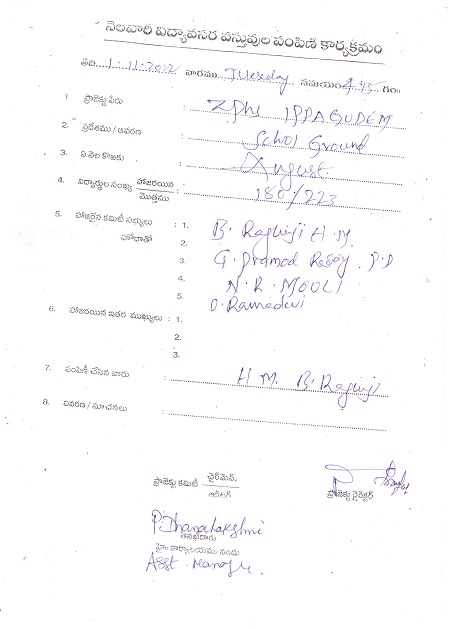 నెలవారీ విద్యావసర వస్తువుల పంపిణి కార్యక్రమం
తేది 1.11.2022 వారము Tuesday సమయం 4.45 గం॥
1. ప్రాజెక్టు పేరు : ZPHS IPPAGUDEM
2. ప్రదేశము / ఆవరణ : School Ground
3. ఏ నెల కొఱకు : August.
4. విద్యార్థుల సంఖ్య హాజరయిన / మొత్తము : 180/223
5. హాజరైన కమిటీ సభ్యులు : 1. B. Raghuji H.M.
హోదాతో 2.
3. G. Pramod Reddy. P.D
4. N.R. MOULI
5. O. Ramadevi
6. హాజరయిన ఇతర ముఖ్యులు : 1.
2.
3.
7. పంపిణీ చేసిన వారు : HM. B. Raghuji
8. వివరణ / సూచనలు :
ప్రాజెక్టు కమిటీ ఛైర్‌మెన్. / ఆడిటర్
ప్రాజెక్టు డైరెక్టర్
P. Dhanalakshmi
తనిఖీదారు
హెచ్ కార్యాలయము నందు
Asst. Manager.